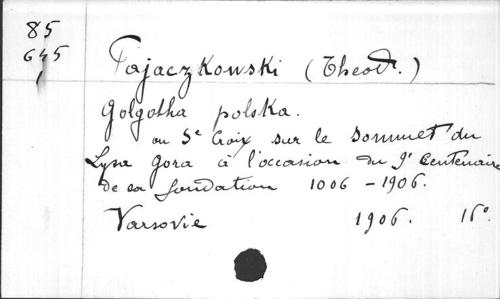 85
645
1
Pajaczkowski (Theodr.)
Golgotha polska.
ou Ste Croix sur le sommet du
Lysa Gora à l'occasion du 9e Centenaire
de sa fondation 1006 - 1906.
Varsovie 1906. 16o.